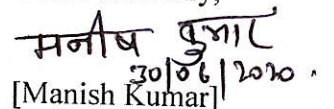 मनीष कुमार
30/06/2020.
[Manish Kumar]